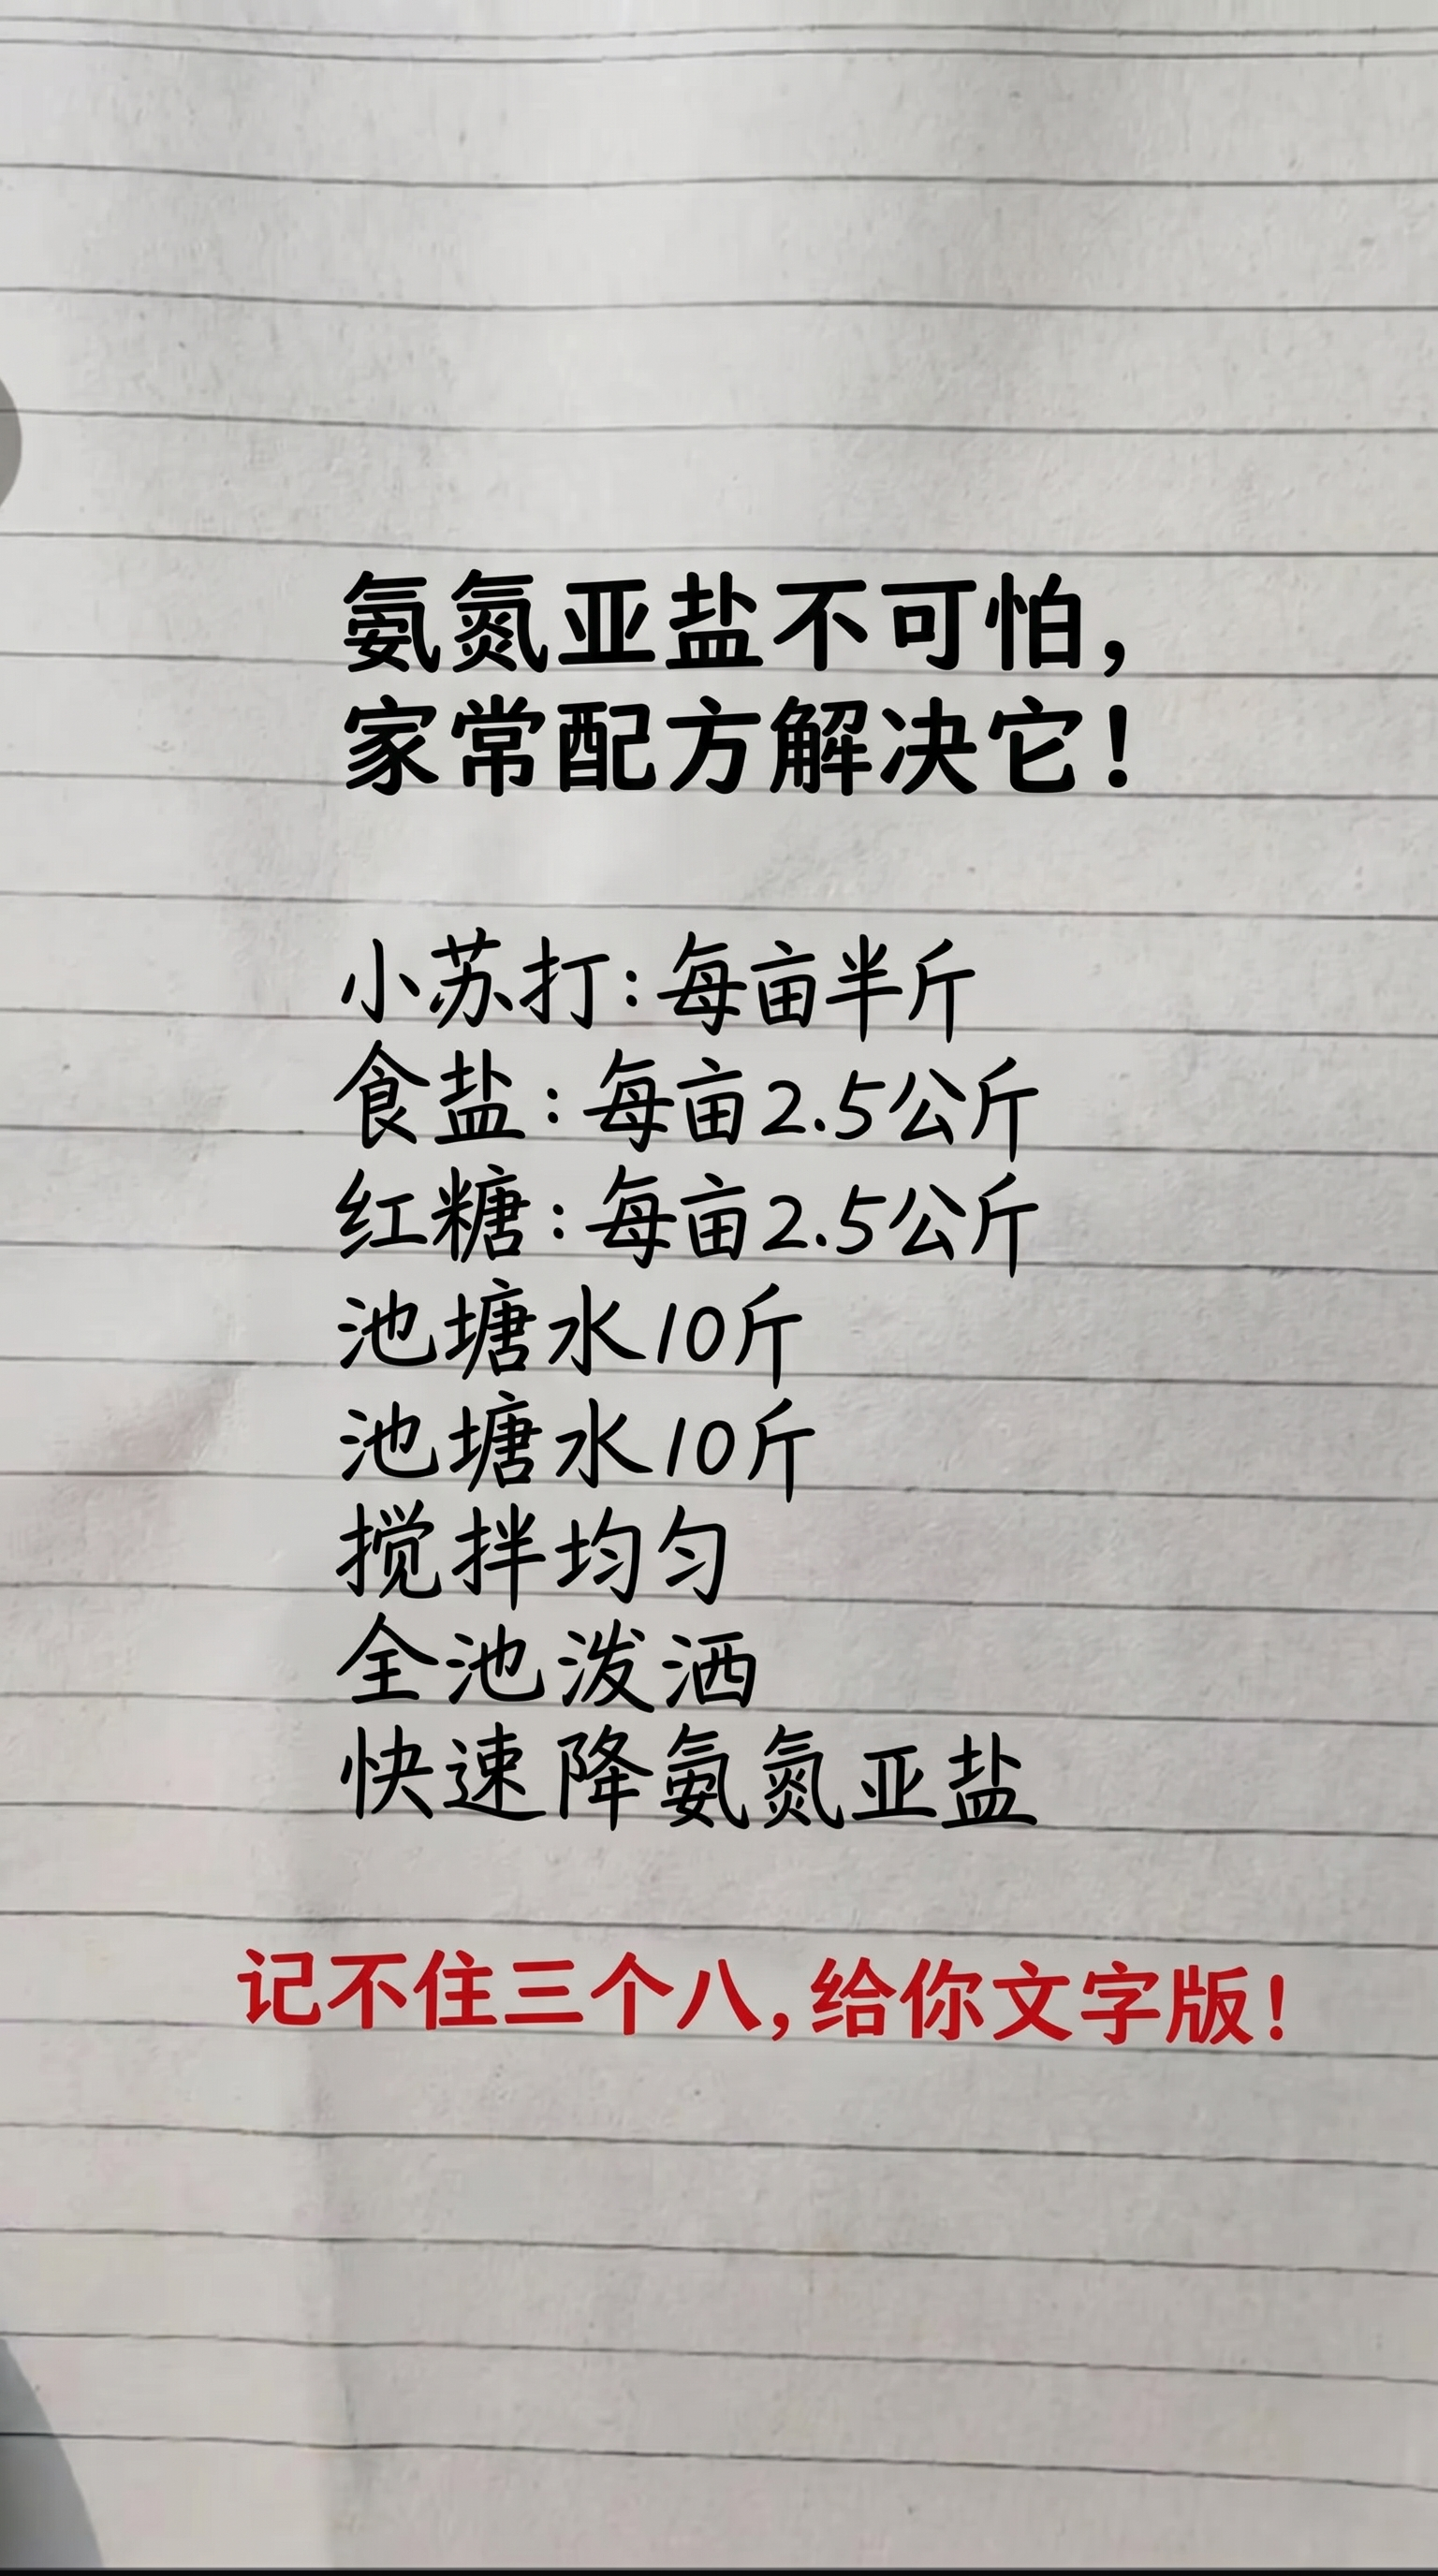 氨氮亚盐不可怕，
家常配方解决它！
小苏打：每亩半斤
食盐：每亩2.5公斤
红糖：每亩2.5公斤
池塘水10斤
池塘水10斤
搅拌均匀
全池泼洒
快速降氨氮亚盐
记不住三个八，给你文字版！